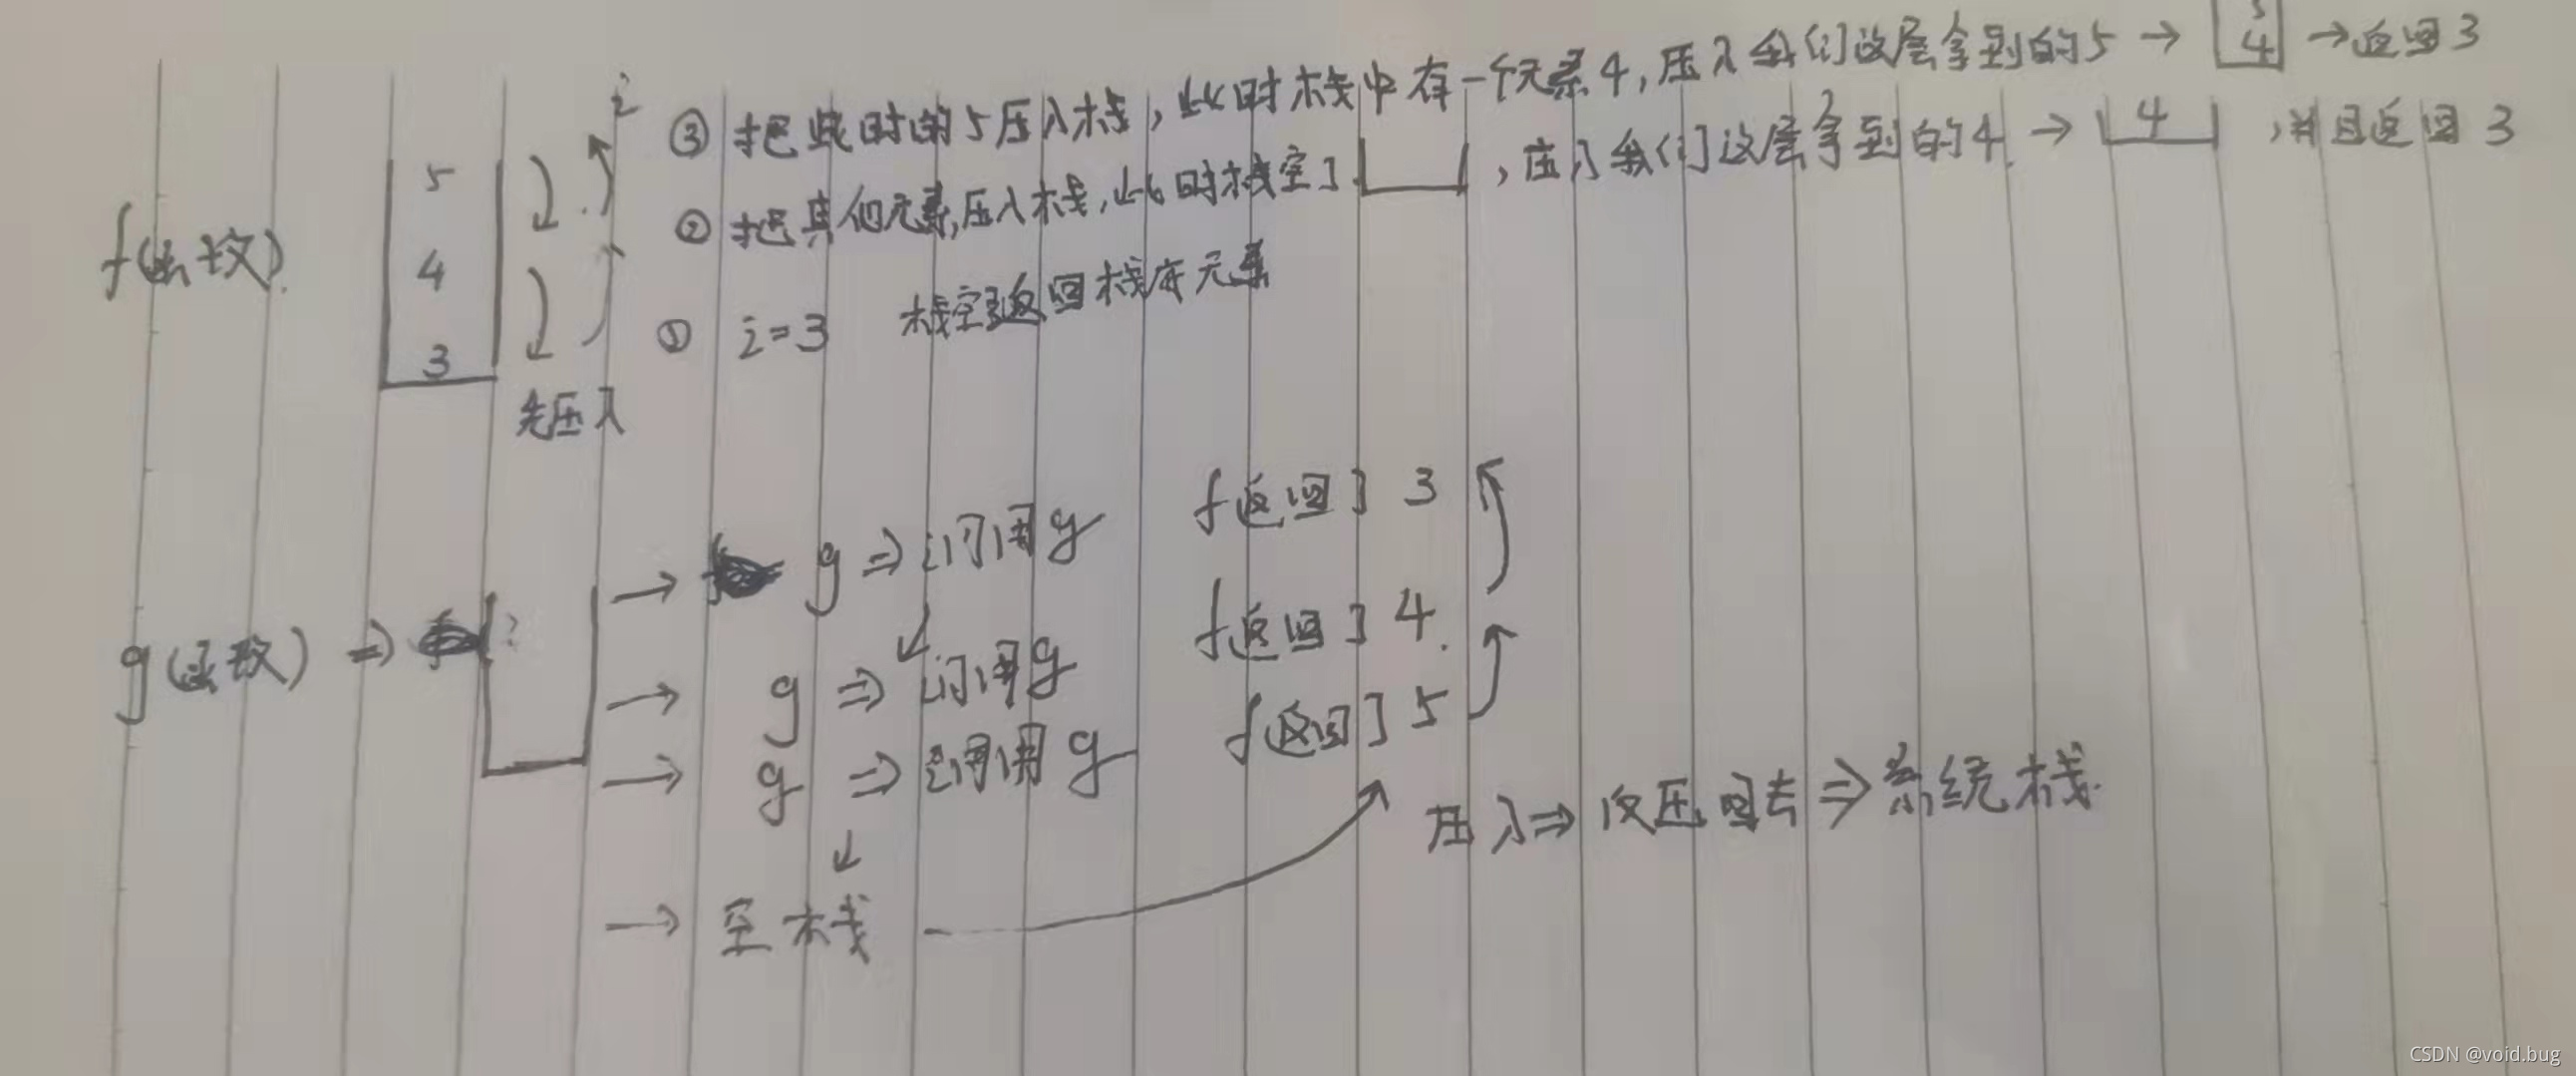 i
③ 把此时的5压入栈，此时栈中有一个元素4，压入我们这层拿到的5 → 5 4 → 返回3
② 把其他元素压入栈，此时栈空了，压入我们这层拿到的4 → 4，并且返回3
① i=3 栈空了返回栈底元素
f(函数)
5
4
3
先压入
g(函数) ⇒
→ g ⇒ 调用g f返回了3
→ g ⇒ 调用g f返回了4
→ g ⇒ 调用g f返回了5
压入 ⇒ 反压回去 ⇒ 系统栈
→ 空栈
CSDN @void.bug